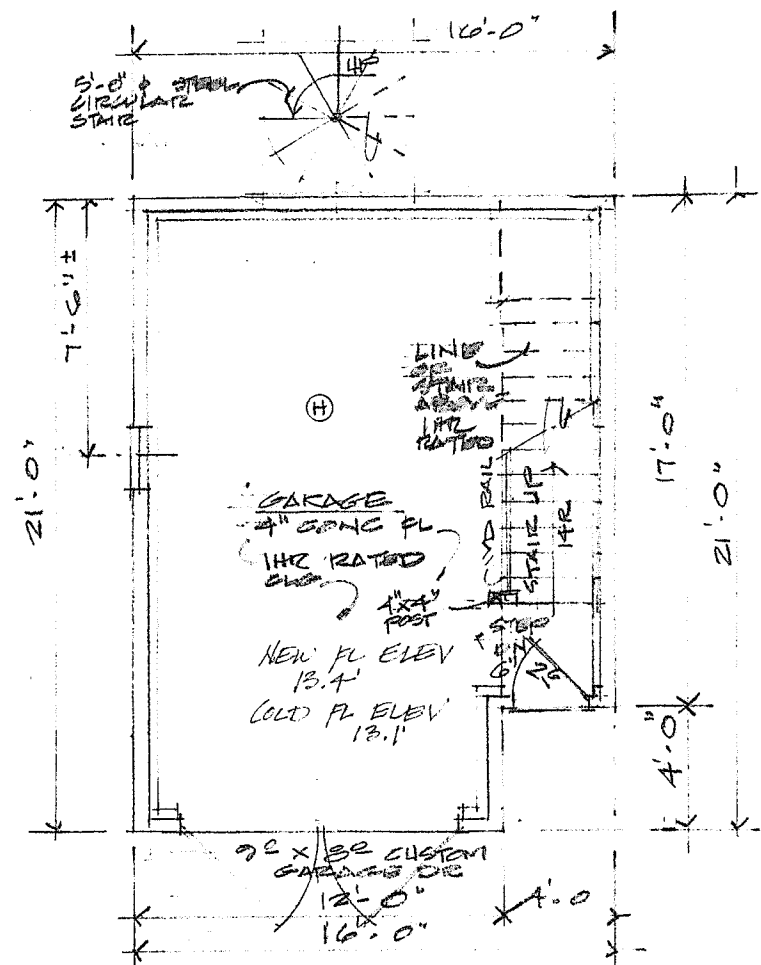 16'-0"
5'-0" ⌀ STEEL
CIRCULAR
STAIR
7'-6"±
21'-0"
LINE
OF
STAIR
ABOVE
1HR
RATED
Ⓗ
17'-0"
21'-0"
GARAGE
4" CONC FL
1HR RATED
CLG
4"x4"
POST
RAIL
STAIR UP
14R
STEP
NEW FL ELEV
13.4'
(OLD FL ELEV
13.1'
2⁶
4'-0"
9⁰ x 8⁰ CUSTOM
GARAGE DR
12'-0"
4'-0
16'-0"